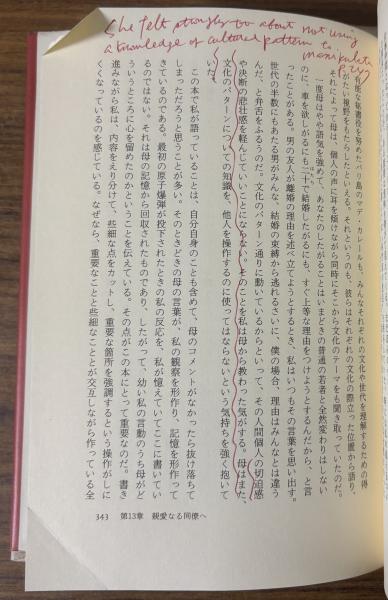 She felt strongly too about not using
a knowledge of cultural pattern to
manipulate
P297
有能な秘書役を努めたバリ島のマデ・カレールも、みんなそれぞれの文化や世代を理解するための得
がたい視野をもたらしたといえる。それというのも、彼らはそれぞれの文化の際立った位置から語り、
それによって母は、個人の声に耳を傾けながら同時にそこから文化のテーマも聞き取っていたのだ。
一度母はやや語気を強めて、あなたのしたがることはいまどきの普通の若者と全然変わりはしない
のに、車を欲しがるにも二十で結婚したがるにも、すぐ上等な理由をつけようとするんだから、と言
ったことがある。男の友人が離婚の理由を述べ立てようとするとき、私はいつもその言葉を思い出す。
世代の半数にもあたる男がみんな、結婚の束縛から逃れるさいに、僕の場合、理由はみんなとは違う
んだ、と弁舌をふるうのだ。文化のパターン通りに動いているからといって、その人間個人の切迫感
や決断の悲壮感を軽んじていいことにならない。そのことを私は母から教わった気がする。母はまた、
文化のパターンについての知識を、他人を操作するのに使ってはならないという気持ちを強く抱いて
いた。
この本で私が語っていることは、自分自身のことも含めて、母のコメントがなかったら抜け落ちて
しまっただろうと思うことが多い。そのときどきの母の言葉が、私の観察を形作り、記憶を形作って
きているのである。最初の原子爆弾が投下されたときの私の反応を、私が憶えていてここに書いてい
るのではない。それは母の記憶から回収されたものであり、したがって、幼い私の言動のうち母がど
ういうところに心を留めたのかということを伝えている。その点がこの本にとって重要なのだ。書き
進みながら私は、内容をえり分けて、些細な点をカットし、重要な箇所を強調するという操作がしに
くくなっているのを感じている。なぜなら、重要なことと些細なこととが交互しながら作っている全
343 第13章 親愛なる同僚へ